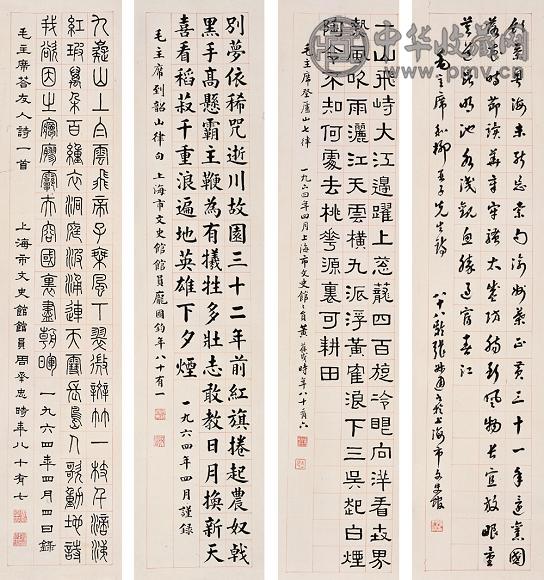 中华收藏网
飲茶粵海未能忘索句渝州葉正黄三十一年還舊國
落花時節讀華章牢騷太盛防腸斷風物長宜放眼量
莫道昆明池水淺觀魚勝過富春江
毛主席和柳亞子先生詩 八十八齡張 通書於上海市文史館
一山飛峙大江邊躍上葱蘢四百旋冷眼向洋看世界
熱風吹雨灑江天雲橫九派浮黃鶴浪下三吳起白煙
陶令不知何處去桃花源裏可耕田
毛主席登廬山七律 一九六四年四月上海市文史館〻員黄葆戉時年八十有六
別夢依稀咒逝川故園三十二年前紅旗捲起農奴戟
黑手高懸霸主鞭為有犧牲多壯志敢教日月換新天
喜看稻菽千重浪遍地英雄下夕煙 一九六四年四月謹錄
毛主席到韶山律句 上海市文史館館員龐國鈞年八十有一
九嶷山上白雲飛帝子乘風下翠微斑竹一枝千滴淚
紅霞萬朵百重衣洞庭波涌連天雪長島人歌動地詩
我欲因之夢寥廓芙蓉國裏盡朝暉 一九六四年四月四日錄
毛主席荅友人詩一首 上海市文史館館員周承忠時年八十有七